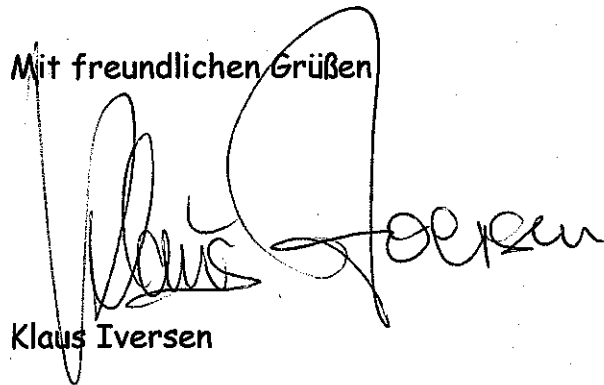 Mit freundlichen Grüßen
Klaus Iversen
Klaus Iversen